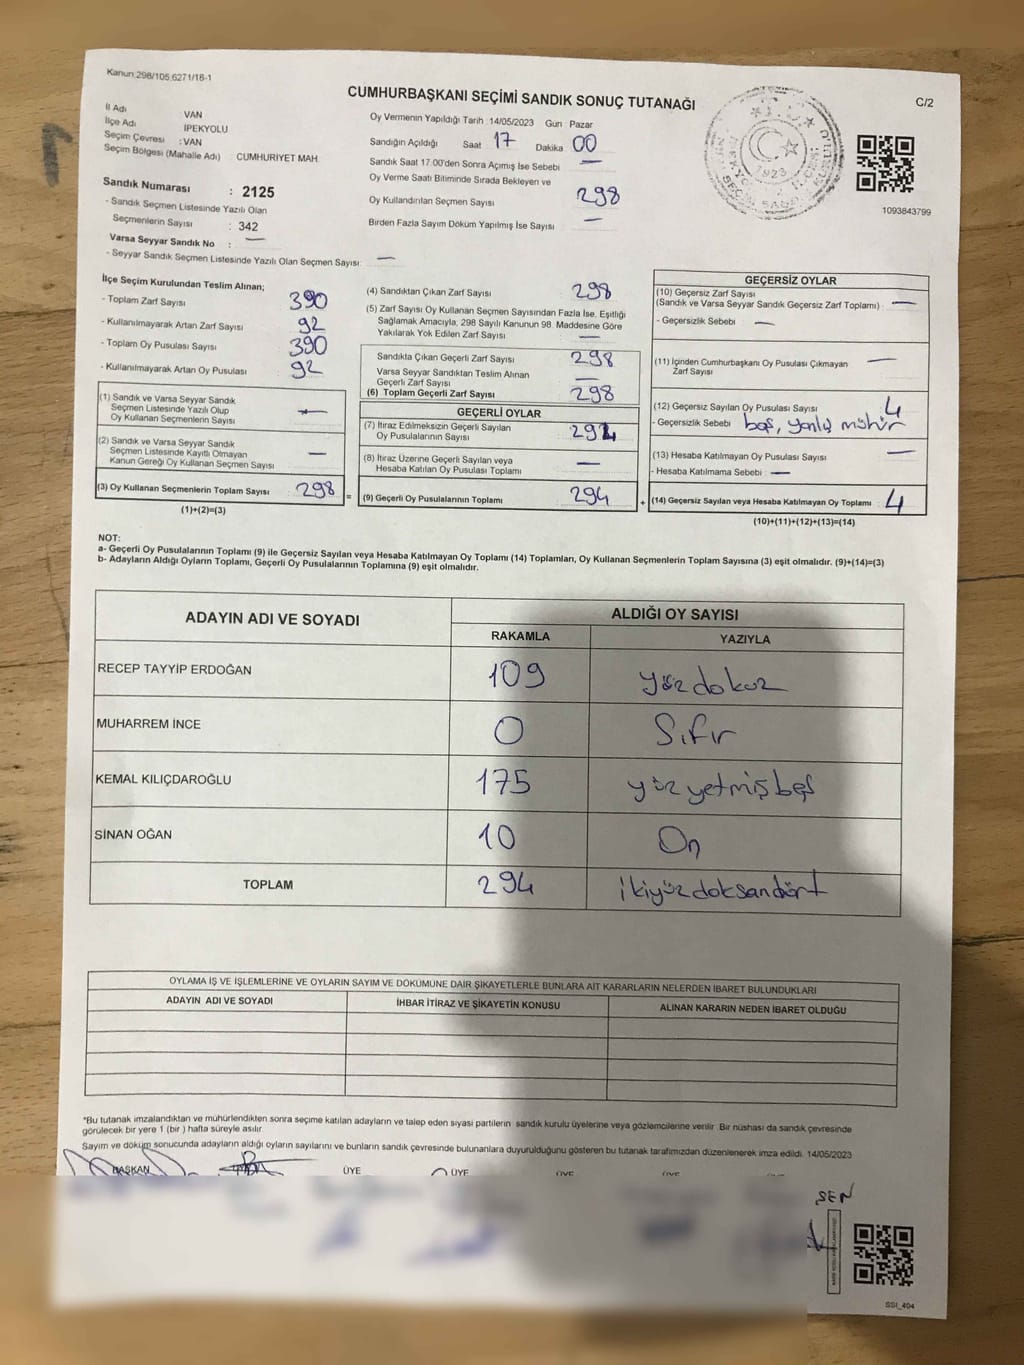 Kanun:298/105;6271/18-1
CUMHURBAŞKANI SEÇİMİ SANDIK SONUÇ TUTANAĞI
C/2
İl Adı VAN
İlçe Adı İPEKYOLU
Seçim Çevresi : VAN
Seçim Bölgesi (Mahalle Adı) CUMHURİYET MAH.
Sandık Numarası : 2125
- Sandık Seçmen Listesinde Yazılı Olan
Seçmenlerin Sayısı : 342
Varsa Seyyar Sandık No : —
- Seyyar Sandık Seçmen Listesinde Yazılı Olan Seçmen Sayısı: —
Oy Vermenin Yapıldığı Tarih :14/05/2023 Gün : Pazar
Sandığın Açıldığı Saat 17 Dakika 00
Sandık Saat 17.00'den Sonra Açılmış İse Sebebi —
Oy Verme Saati Bitiminde Sırada Bekleyen ve
Oy Kullandırılan Seçmen Sayısı 298
Birden Fazla Sayım Döküm Yapılmış İse Sayısı —
1923
1093843799
İlçe Seçim Kurulundan Teslim Alınan;
- Toplam Zarf Sayısı 390
- Kullanılmayarak Artan Zarf Sayısı 92
- Toplam Oy Pusulası Sayısı 390
- Kullanılmayarak Artan Oy Pusulası 92
(1) Sandık ve Varsa Seyyar Sandık
Seçmen Listesinde Yazılı Olup
Oy Kullanan Seçmenlerin Sayısı —
(2) Sandık ve Varsa Seyyar Sandık
Seçmen Listesinde Kayıtlı Olmayan
Kanun Gereği Oy Kullanan Seçmen Sayısı —
(3) Oy Kullanan Seçmenlerin Toplam Sayısı 298 =
(1)+(2)=(3)
(4) Sandıktan Çıkan Zarf Sayısı 298
(5) Zarf Sayısı Oy Kullanan Seçmen Sayısından Fazla İse, Eşitliği
Sağlamak Amacıyla, 298 Sayılı Kanunun 98. Maddesine Göre
Yakılarak Yok Edilen Zarf Sayısı —
Sandıkta Çıkan Geçerli Zarf Sayısı 298
Varsa Seyyar Sandıktan Teslim Alınan
Geçerli Zarf Sayısı —
(6) Toplam Geçerli Zarf Sayısı 298
GEÇERLİ OYLAR
(7) İtiraz Edilmeksizin Geçerli Sayılan
Oy Pusulalarının Sayısı 294
(8) İtiraz Üzerine Geçerli Sayılan veya
Hesaba Katılan Oy Pusulası Toplamı —
(9) Geçerli Oy Pusulalarının Toplamı 294 +
GEÇERSİZ OYLAR
(10) Geçersiz Zarf Sayısı
(Sandık ve Varsa Seyyar Sandık Geçersiz Zarf Toplamı) : —
- Geçersizlik Sebebi : —
(11) İçinden Cumhurbaşkanı Oy Pusulası Çıkmayan
Zarf Sayısı —
(12) Geçersiz Sayılan Oy Pusulası Sayısı 4
- Geçersizlik Sebebi : boş, yanlış mühür
(13) Hesaba Katılmayan Oy Pusulası Sayısı —
- Hesaba Katılmama Sebebi : —
(14) Geçersiz Sayılan veya Hesaba Katılmayan Oy Toplamı 4
(10)+(11)+(12)+(13)=(14)
NOT:
a- Geçerli Oy Pusulalarının Toplamı (9) ile Geçersiz Sayılan veya Hesaba Katılmayan Oy Toplamı (14) Toplamları, Oy Kullanan Seçmenlerin Toplam Sayısına (3) eşit olmalıdır. (9)+(14)=(3)
b- Adayların Aldığı Oyların Toplamı, Geçerli Oy Pusulalarının Toplamına (9) eşit olmalıdır.
ADAYIN ADI VE SOYADI ALDIĞI OY SAYISI
RAKAMLA YAZIYLA
RECEP TAYYİP ERDOĞAN 109 yüzdokuz
MUHARREM İNCE 0 Sıfır
KEMAL KILIÇDAROĞLU 175 yüzyetmişbeş
SİNAN OĞAN 10 On
TOPLAM 294 ikiyüzdoksandört
OYLAMA İŞ VE İŞLEMLERİNE VE OYLARIN SAYIM VE DÖKÜMÜNE DAİR ŞİKAYETLERLE BUNLARA AİT KARARLARIN NELERDEN İBARET BULUNDUKLARI
ADAYIN ADI VE SOYADI İHBAR İTİRAZ VE ŞİKAYETİN KONUSU ALINAN KARARIN NEDEN İBARET OLDUĞU
*Bu tutanak imzalandıktan ve mühürlendikten sonra seçime katılan adayların ve talep eden siyasi partilerin sandık kurulu üyelerine veya gözlemcilerine verilir. Bir nüshası da sandık çevresinde
görülecek bir yere 1 (bir ) hafta süreyle asılır.
Sayım ve döküm sonucunda adayların aldığı oyların sayılarını ve bunların sandık çevresinde bulunanlara duyurulduğunu gösteren bu tutanak tarafımızdan düzenlenerek imza edildi. 14/05/2023
BAŞKAN ÜYE ÜYE ÜYE ÜYE
ŞEN
SSI_404